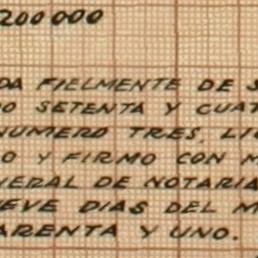 200000
DA FIELMENTE DE S
DO SETENTA Y CUAT
NUMERO TRES, LI
O Y FIRMO CON M
NERAL DE NOTARIA
EVE DIAS DEL M
ARENTA Y UNO.